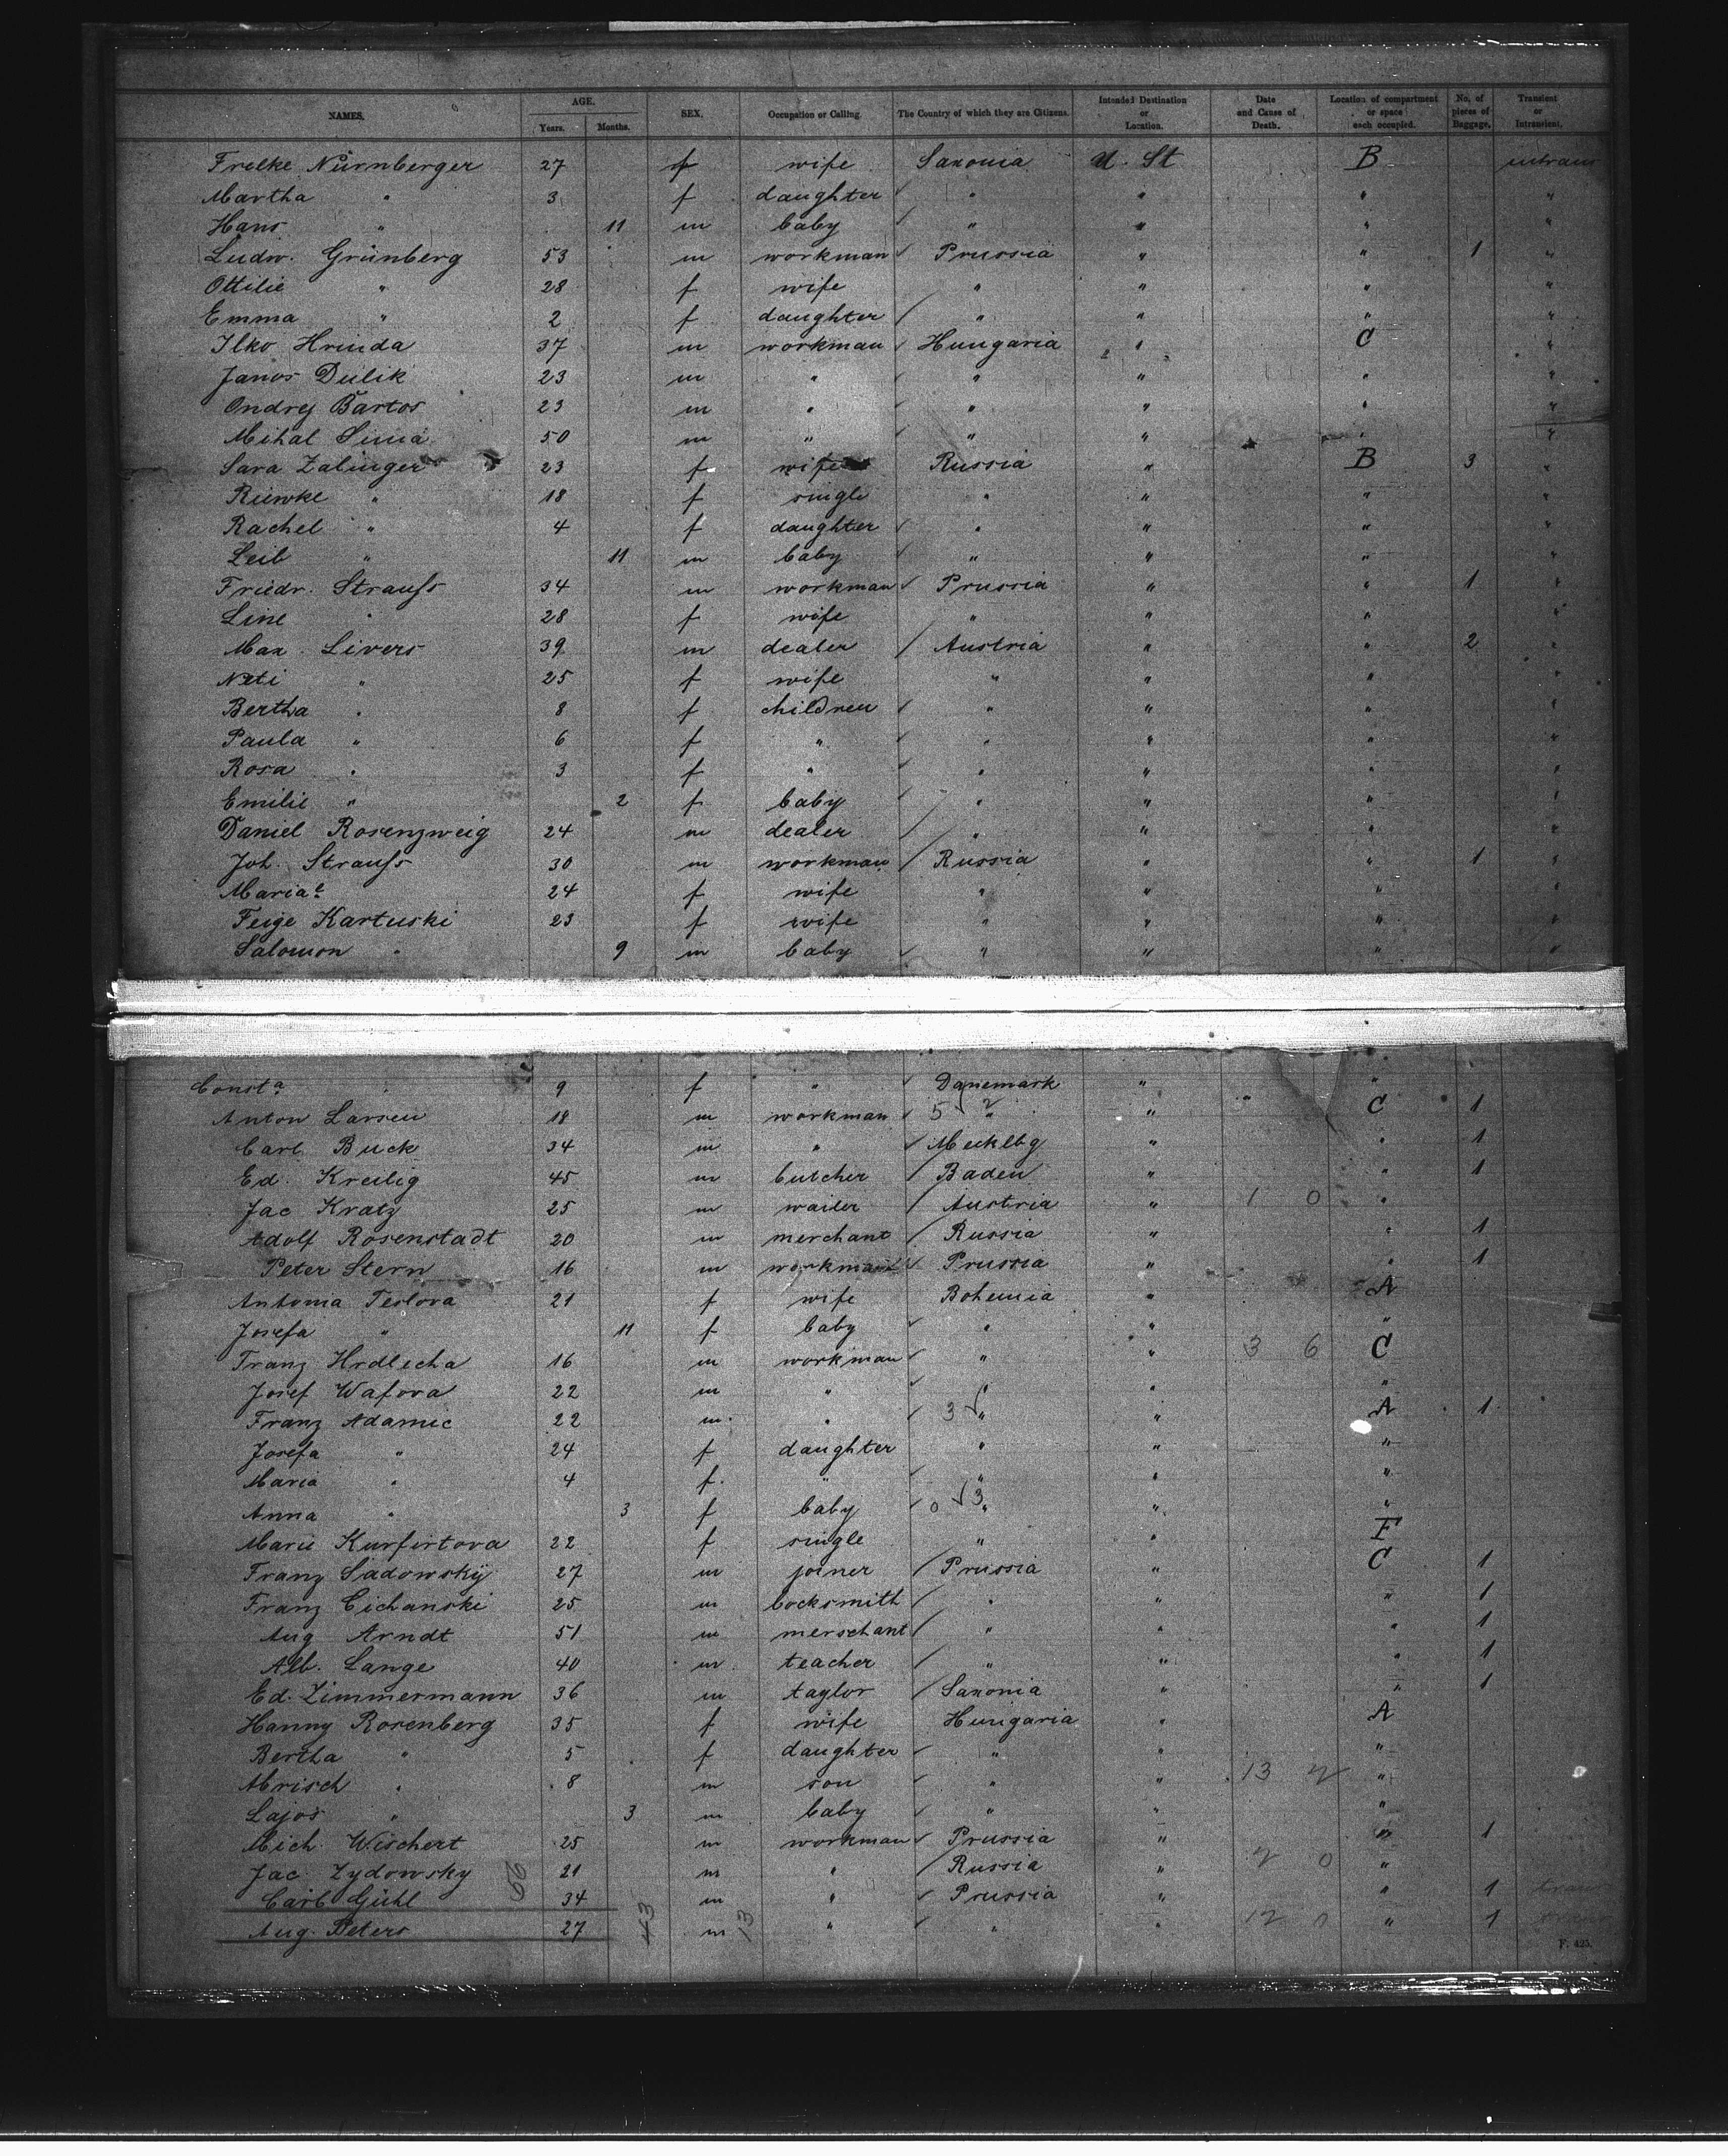 NAMES. AGE. Years. Months. SEX. Occupation or Calling. The Country of which they are Citizens. Intended Destination or Location. Date and Cause of Death. Location of compartment or space each occupied. No. of pieces of Baggage. Transient or Intransient.
Frelke Nürnberger 27 f wife Saxonia U. St B intrans
Martha " 3 f daughter " " " "
Hans " 11 m baby " " " "
Ludw. Grünberg 53 m workman Prussia " " 1 "
Ottilie " 28 f wife " " " "
Emma " 2 f daughter " " " "
Ilko Hrinda 37 m workman Hungaria " C "
Janos Dulik 23 m " " " " "
Ondrej Bartos 23 m " " " " "
Mihal Sima 50 m " " " " "
Sara Zalinger 23 f wife Russia " B 3 "
Riewke " 18 f single " " " "
Rachel " 4 f daughter " " " "
Leib " 11 m baby " " " "
Friedr. Strauss 34 m workman Prussia " " 1 "
Line " 28 f wife " " " "
Max Livers 39 m dealer Austria " " 2 "
Neti " 25 f wife " " " "
Bertha " 8 f children " " " "
Paula " 6 f " " " " "
Rosa " 3 f " " " " "
Emilie " 2 f baby " " " "
Daniel Rosenzweig 24 m dealer " " " "
Joh. Strauss 30 m workman Russia " " 1 "
Maria " 24 f wife " " " "
Feige Kartuski 23 f wife " " " "
Salomon " 9 m baby " " " "
Const. " 9 f " Danemark " "
Anton Larsen 18 m workman 5 " " C 1
Carl Buck 34 m " Mecklbg " " 1
Ed. Kreilig 45 m butcher Baden " " 1
Jac Kratz 25 m waiter Austria " 1 0 "
Adolf Rosenstadt 20 m merchant Russia " " 1
Peter Stern 16 m workman Prussia " " 1
Antonia Teslova 21 f wife Bohemia " A
Josefa " 11 f baby " " "
Franz Hrdlicha 16 m workman " " 3 6 C
Josef Wafora 22 m " " " "
Franz Adamec 22 m " 3 " " A 1
Josefa " 24 f daughter " " "
Maria " 4 f " " " "
Anna " 3 f baby 0 3 " " "
Marie Kurfirtova 22 f single " " F
Franz Sadowsky 27 m joiner Prussia " C 1
Franz Cichanski 25 m locksmith " " " 1
Aug Arndt 51 m merschant " " " 1
Alb. Lange 40 m teacher " " " 1
Ed. Zimmermann 36 m taylor Saxonia " " 1
Hanny Rosenberg 35 f wife Hungaria " A
Bertha " 5 f daughter " " "
Mrisch " 8 m son " " 13 "
Lajos " 3 m baby " " "
Mich. Wischert 25 m workman Prussia " " 1
Jac Zydowsky 21 m " Russia " 0 "
Carl Gühl 34 m " Prussia " " 1 trans
Aug. Peters 27 m " " " 12 0 " 1 trans
56 43 13
F. 425.